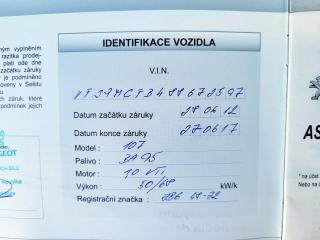 ným vyplněním
razítka prodej-
platí ode dne
začátku záruky
je podmíněno
oveny v Sešitu
h záruk, které
podmínek jejich
GEOT
IDENTIFIKACE VOZIDLA
V.I.N.
Datum začátku záruky 27 06 12
Datum konce záruky 270617
Model : 107
Palivo : BA95
Motor :
Výkon : 50/68 kW/k
Registrační značka :
AS
* na účet
Nebo na